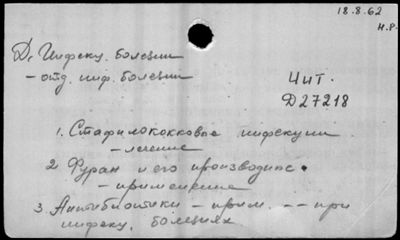 18.8.62
н.р.
Д, Инфекц. болезни
– отд. инф. болезни
Чит.
Д27218
1. Стафилококковые инфекции
– лечение
2 Фуран и его производные.
– применение
3. Антибиотики – прим. -- при
инфекц. болезнях